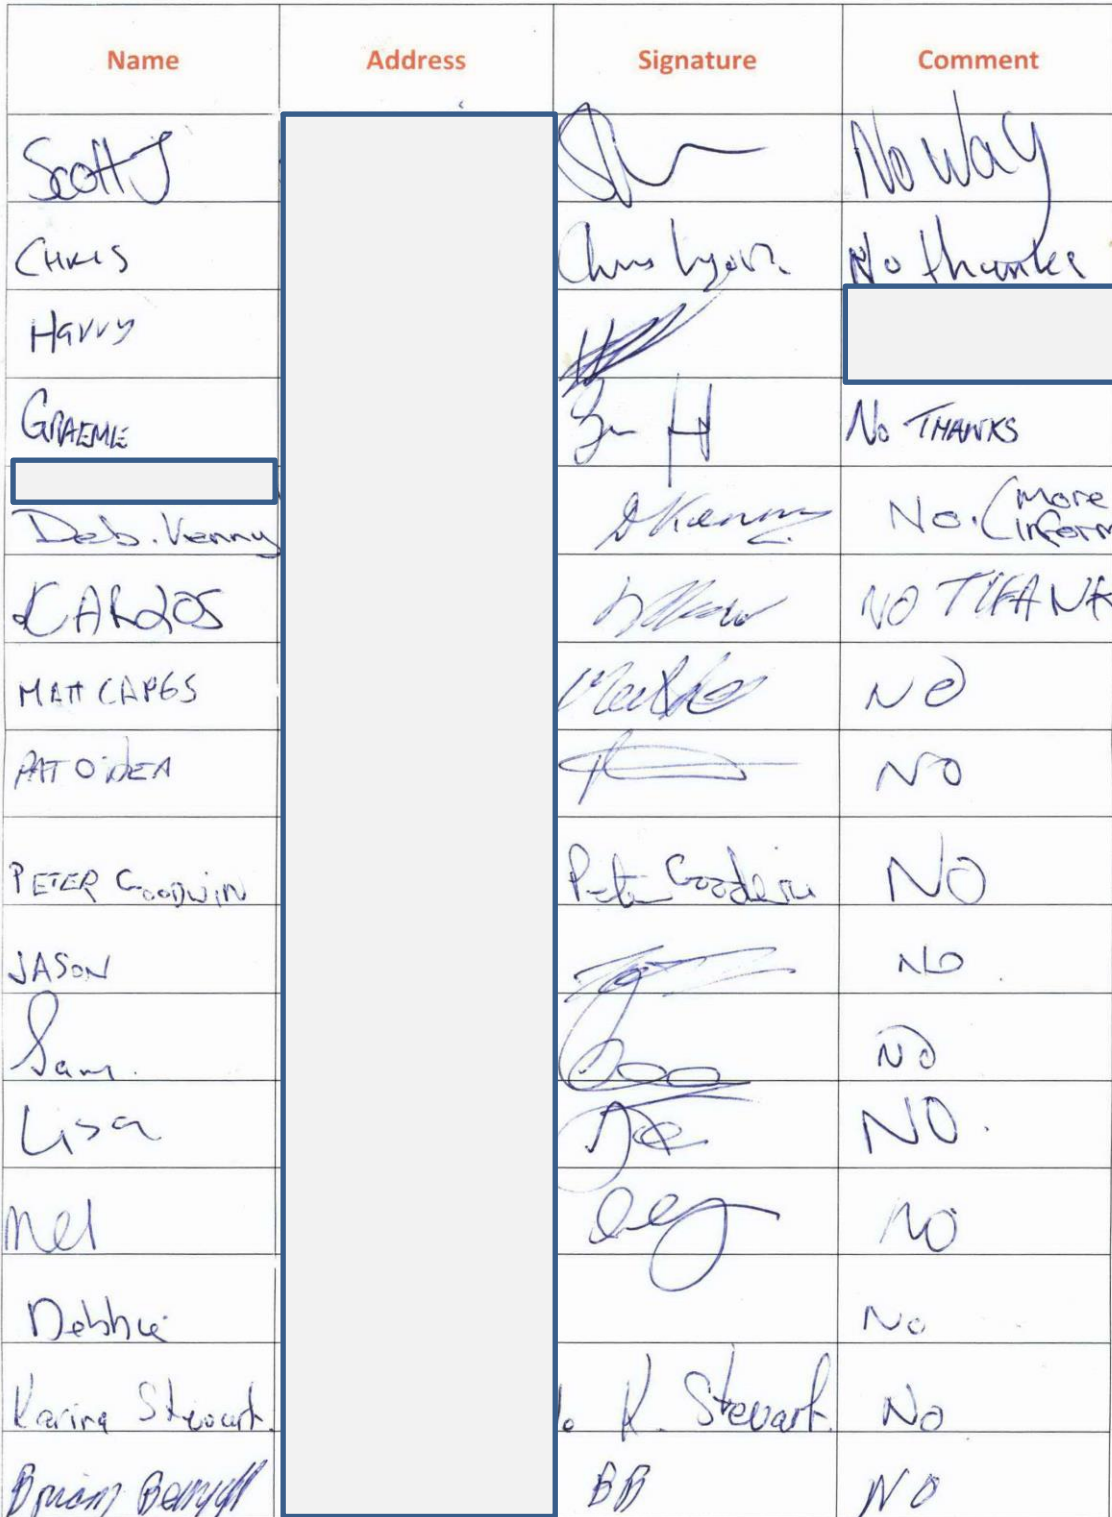 Name Address Signature Comment
Scott J No Way
CHRIS Chris Lyon No thanks
Harry
GRAEME No THANKS
Deb. Kenny D Kenny No. (More
inform
CARLOS NO THANK
MATT CAPES NO
PAT O'DEA NO
PETER GOODWIN Peter Goodwin NO
JASON NO
Sam. NO
Lisa NO.
Mel NO
Debbie No
Karina Stewart. K. Stewart. No
Brian BB NO